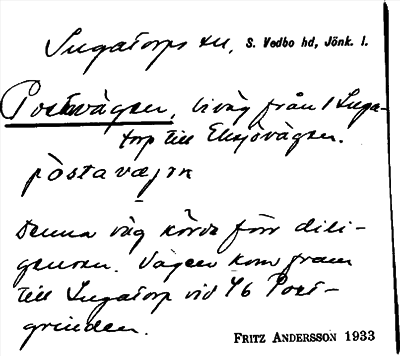 Ingatorps sn, S. Vedbo hd, Jönk. l.
Postvägen, liväg från Inga-
torp till Eksjövägen.
pòstavæjɪn
Denna väg körde förr dili-
gensen. Vägen kom fram
till Ingatorp vid 46 Post-
grinden.
FRITZ ANDERSSON 1933